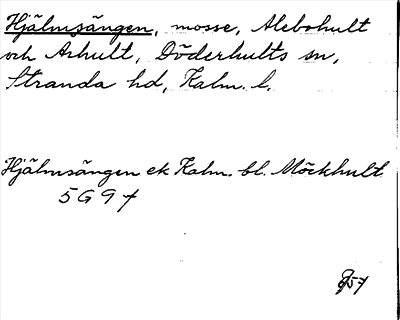 Hjälmsängen, mosse, Alebohult
och Århult, Döderhults sn,
Stranda hd, Kalm. l.
Hjälmsängen ek Kalm. bl. Möckhult
5 G 9 f